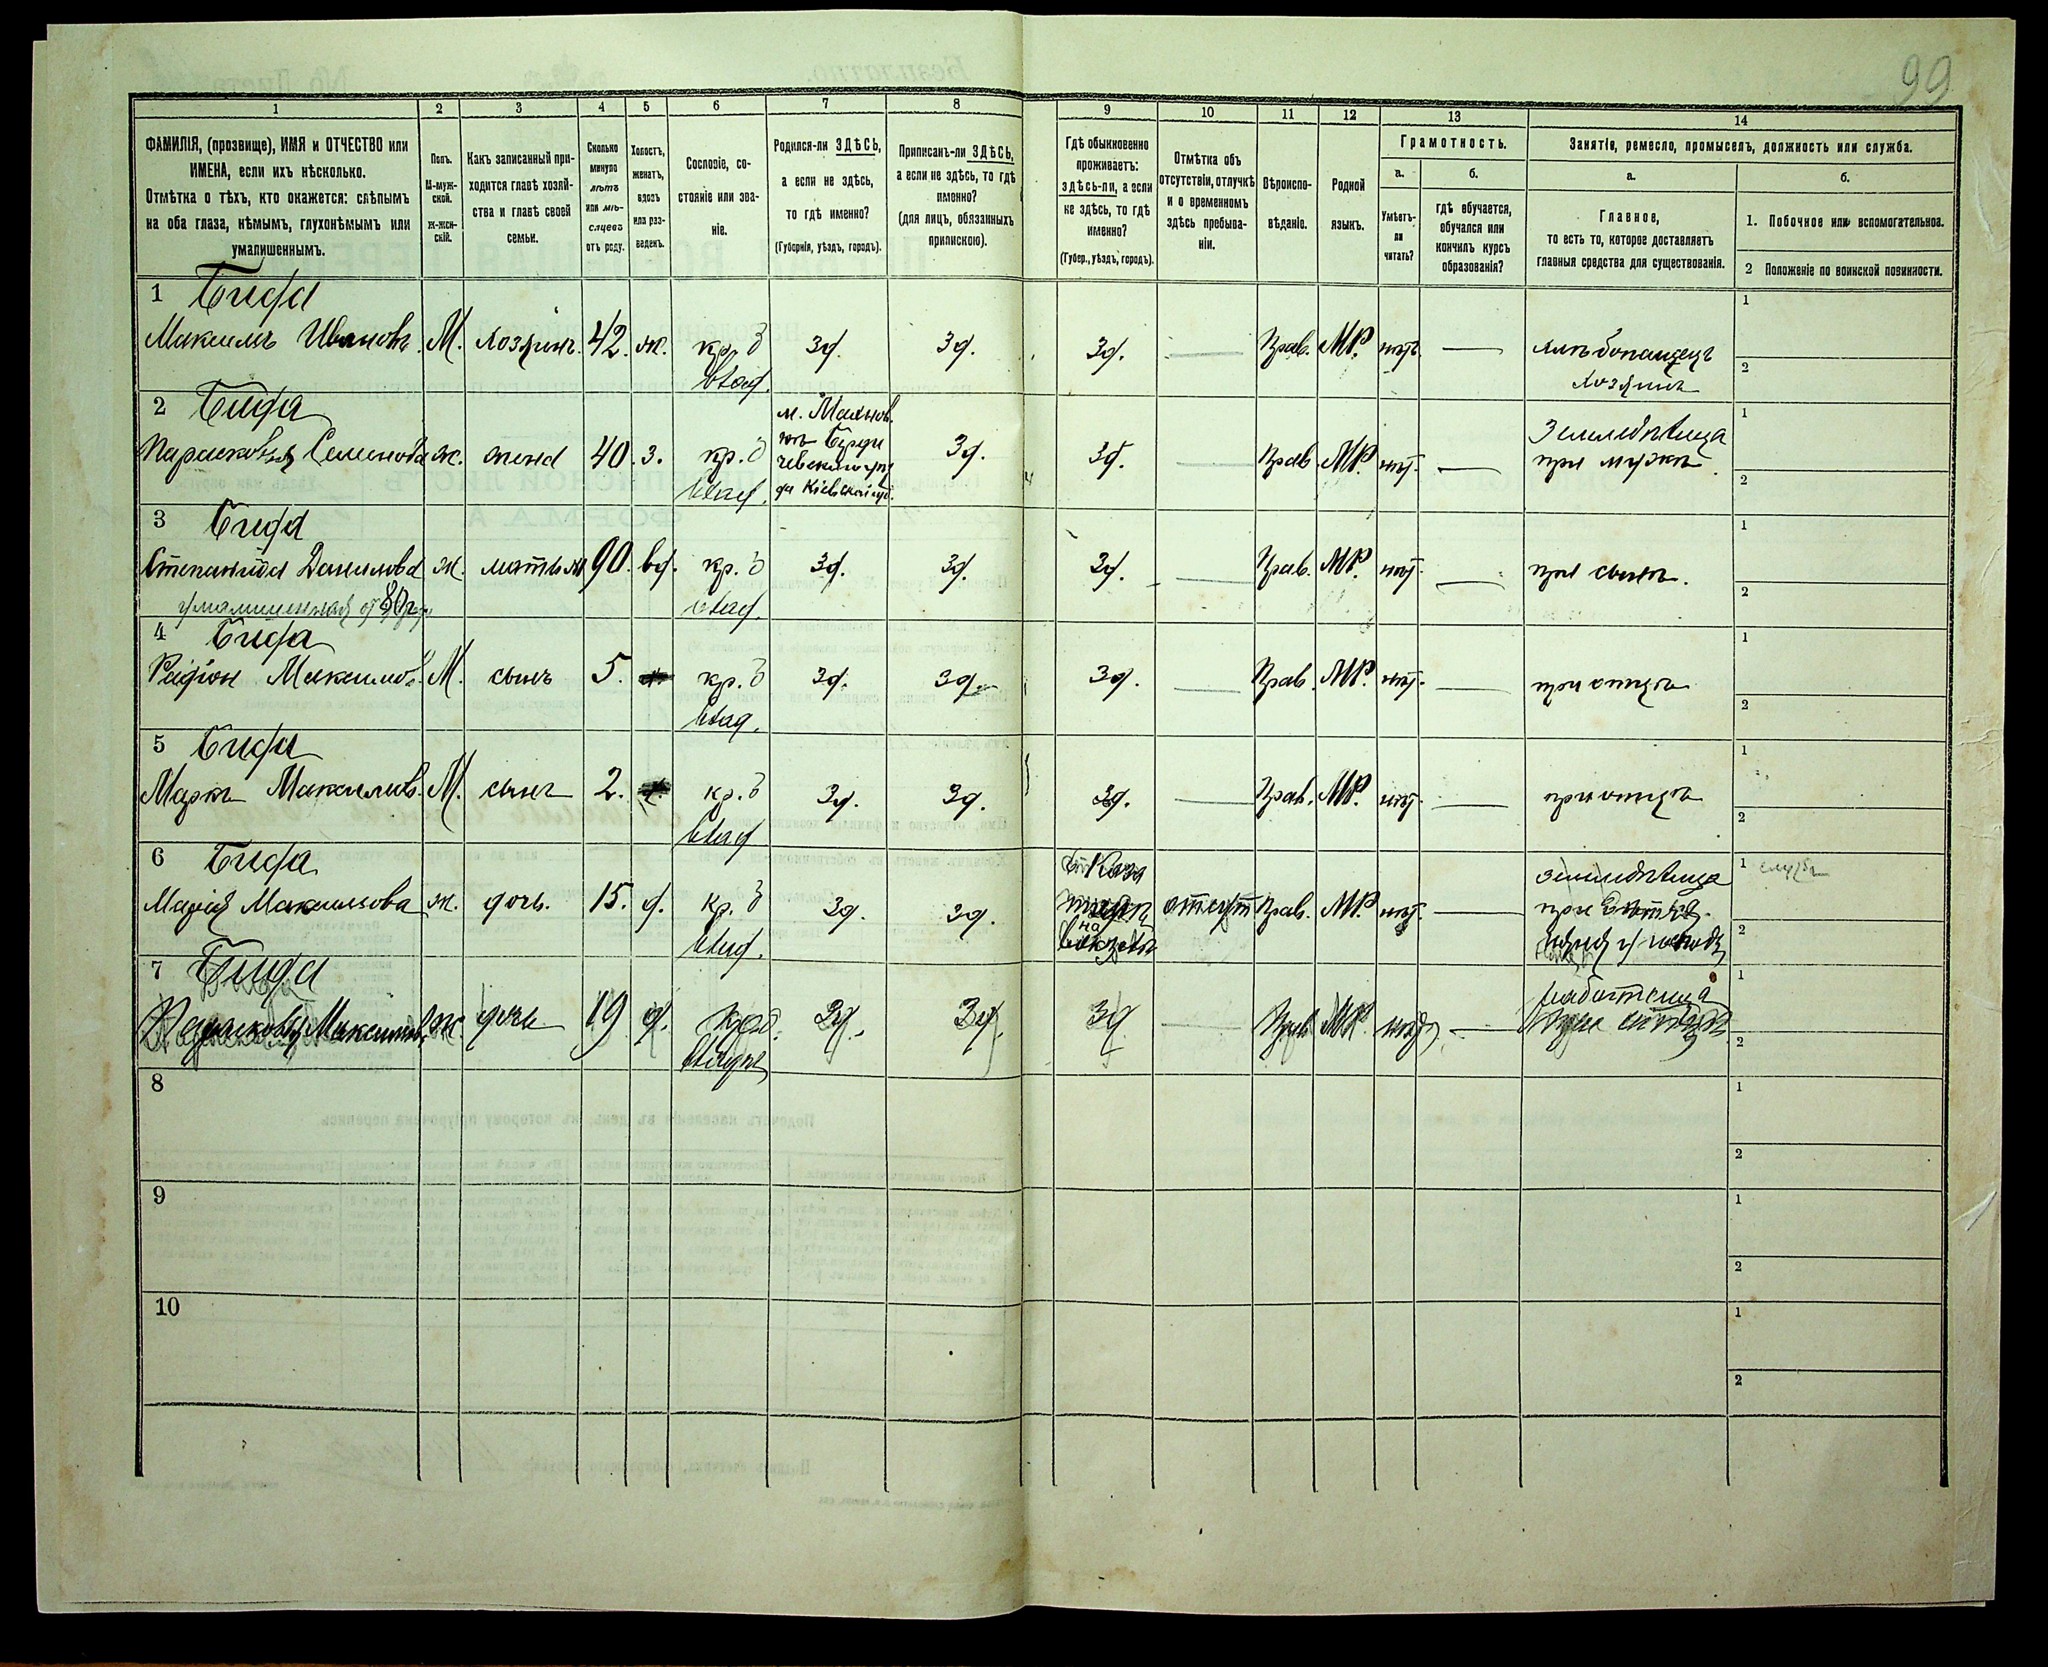 99
1 2 3 4 5 6 7 8 9 10 11 12 13 14
ФАМИЛІЯ, (прозвище), ИМЯ и ОТЧЕСТВО или
ИМЕНА, если ихъ нѣсколько.
Отмѣтка о тѣхъ, кто окажется: слѣпымъ
на оба глаза, нѣмымъ, глухонѣмымъ или
умалишеннымъ.
Полъ.
М-муж-
ской.
Ж-жен-
скій.
Какъ записанный при-
ходится главѣ хозяй-
ства и главѣ своей
семьи.
Сколько
минуло
лѣтъ
или мѣ-
сяцевъ
отъ роду.
Холостъ,
женатъ,
вдовъ
или раз-
веденъ.
Сословіе, со-
стояніе или зва-
ніе.
Родился-ли ЗДѢСЬ,
а если не здѣсь,
то гдѣ именно?
(Губернія, уѣздъ, городъ).
Приписанъ-ли ЗДѢСЬ,
а если не здѣсь, то гдѣ
именно?
(для лицъ, обязанныхъ
припискою).
Гдѣ обыкновенно
проживаетъ:
здѣсь-ли, а если
не здѣсь, то гдѣ
именно?
(Губер., уѣздъ, городъ).
Отмѣтка объ
отсутствіи, отлучкѣ
и о временномъ
здѣсь пребыва-
ніи.
Вѣроиспо-
вѣданіе.
Родной
языкъ.
Грамотность.
а.
Умѣетъ-
ли
читать?
б.
гдѣ обучается,
обучался или
кончилъ курсъ
образованія?
Занятіе, ремесло, промыселъ, должность или служба.
а.
Главное,
то есть то, которое доставляетъ
главныя средства для существованія.
б.
1. Побочное или вспомогательное.
2 Положеніе по воинской повинности.
1 Бида
Максимъ Ивановъ. М. хозяинъ. 42. ж. кр. З зд. зд. зд. Прав. МР. нѣтъ. хлѣбопашецъ 1
влад. хозяинъ 2
2 Бида м. Махнов. 1
ка Берди Земледѣлица
Парасковія Семенова ж. жена 40. з. кр. З чевскаго уѣз зд. зд. Прав. МР. нѣт. при мужѣ
влад. да Кіевской губ. 2
3 Бида 1
Степанида Данилова ж. мать 90. вд. кр. З зд. зд. зд. Прав. МР. нѣт. при сынѣ.
умалишенная влад. 2
4 Бида 1
Радіон Максимов. М. сынъ 5. кр. З зд. зд. зд. Прав. МР. нѣт. при отцѣ
влад. 2
5 Бида 1
Маркъ Максимов. М. сынъ 2. кр. З зд. зд. зд. Прав. МР. нѣт. при отцѣ
влад 2
6 Бида Каза земледѣлица 1
Марія Максимова ж. дочь. 15. д. кр. З зд. зд. отсут Прав. МР. нѣт. при
влад. на вокзалѣ 2
7 Бида работница 1
Парасковія Максимов. ж. дочь 19 д. кр. З зд. зд. зд. Прав. МР. при отцѣ
2
8 1
2
9 1
2
10 1
2